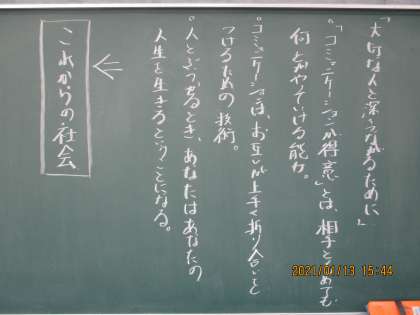 「大切な人と深くつながるために」
。「コミュニケーションが得意」とは、相手ともめても
何とかやっていける能力。
。コミュニケーションは、お互いが上手く折り合いを
つけるための技術。
。人とぶつかるとき、あなたはあなたの
人生を生きるということになる。
←
これからの社会
2021/01/13 15:44